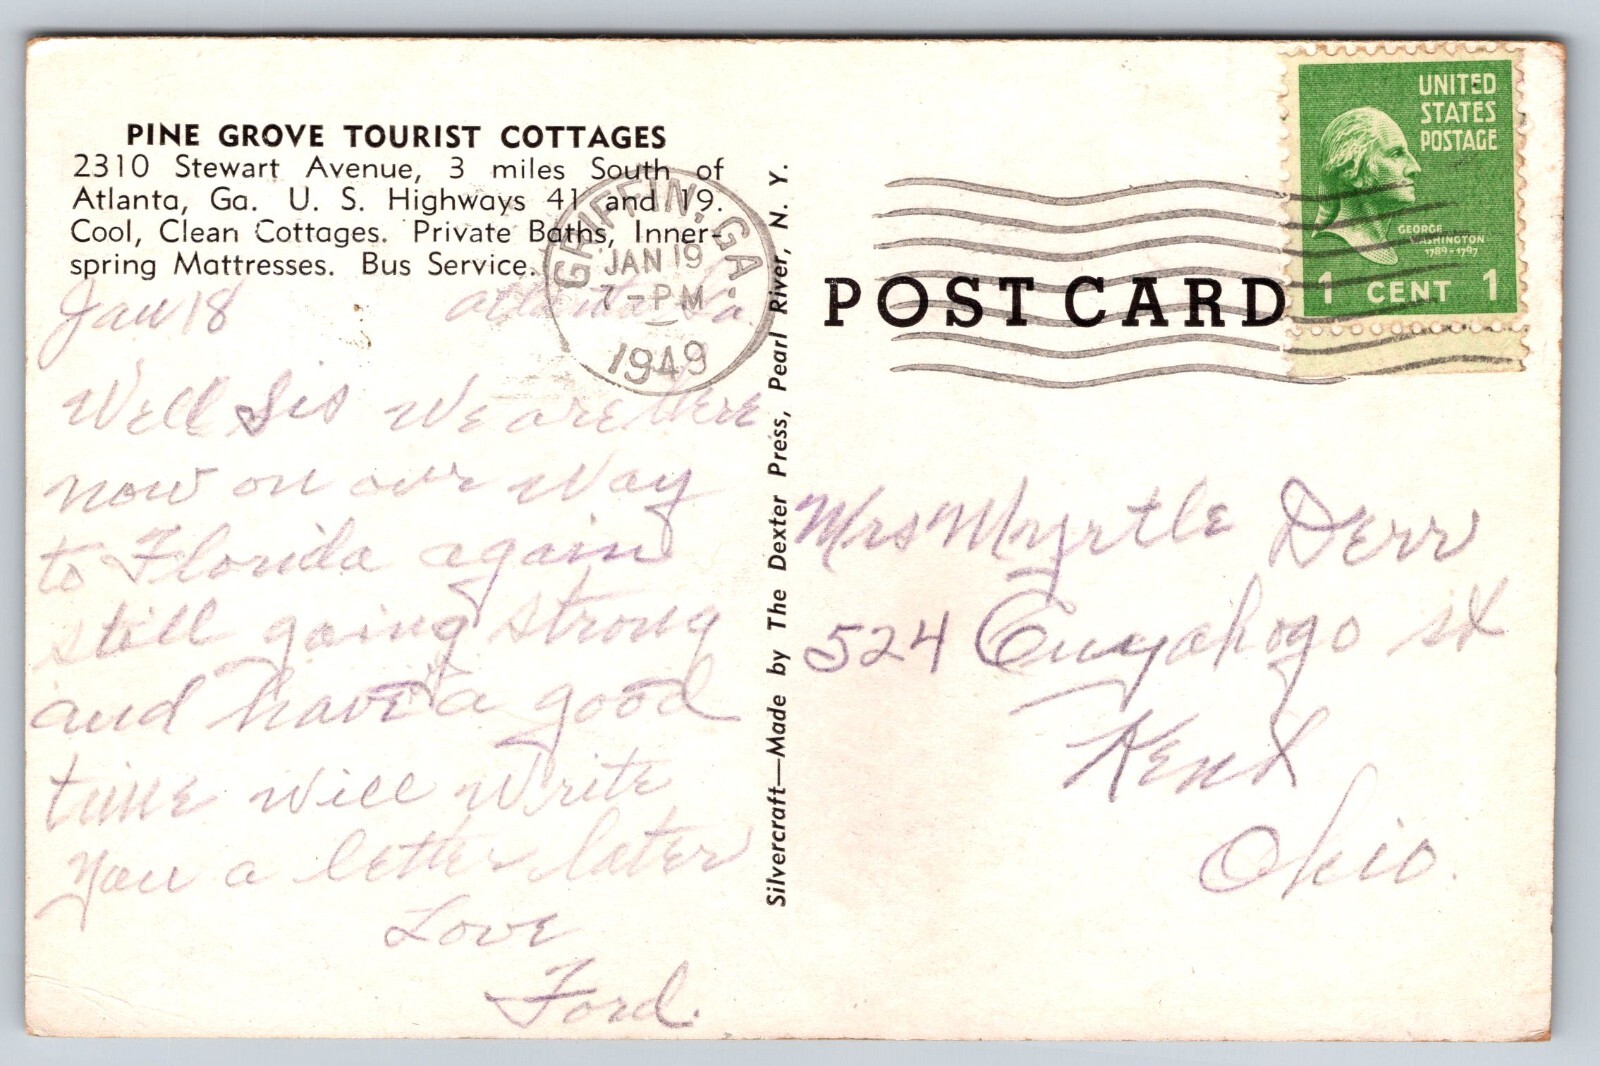 PINE GROVE TOURIST COTTAGES
2310 Stewart Avenue, 3 miles South of
Atlanta, Ga. U. S. Highways 41 and 19.
Cool, Clean Cottages. Private Baths, Inner-
spring Mattresses. Bus Service.
Jan 18 Atlanta Ga.
Well Sis We are Here
now on our Way
to Florida again
still going strong
and have a good
time will Write
you a letter later
Love
Ford.
GRIFFIN, GA.
JAN 19
7-PM
1949
Silvercraft—Made by The Dexter Press, Pearl River, N. Y.
POST CARD
UNITED
STATES
POSTAGE
GEORGE
WASHINGTON
1789-1797
1 CENT 1
Mrs Myrtle Derr
524 Cuyahogo st
Kent
Ohio.